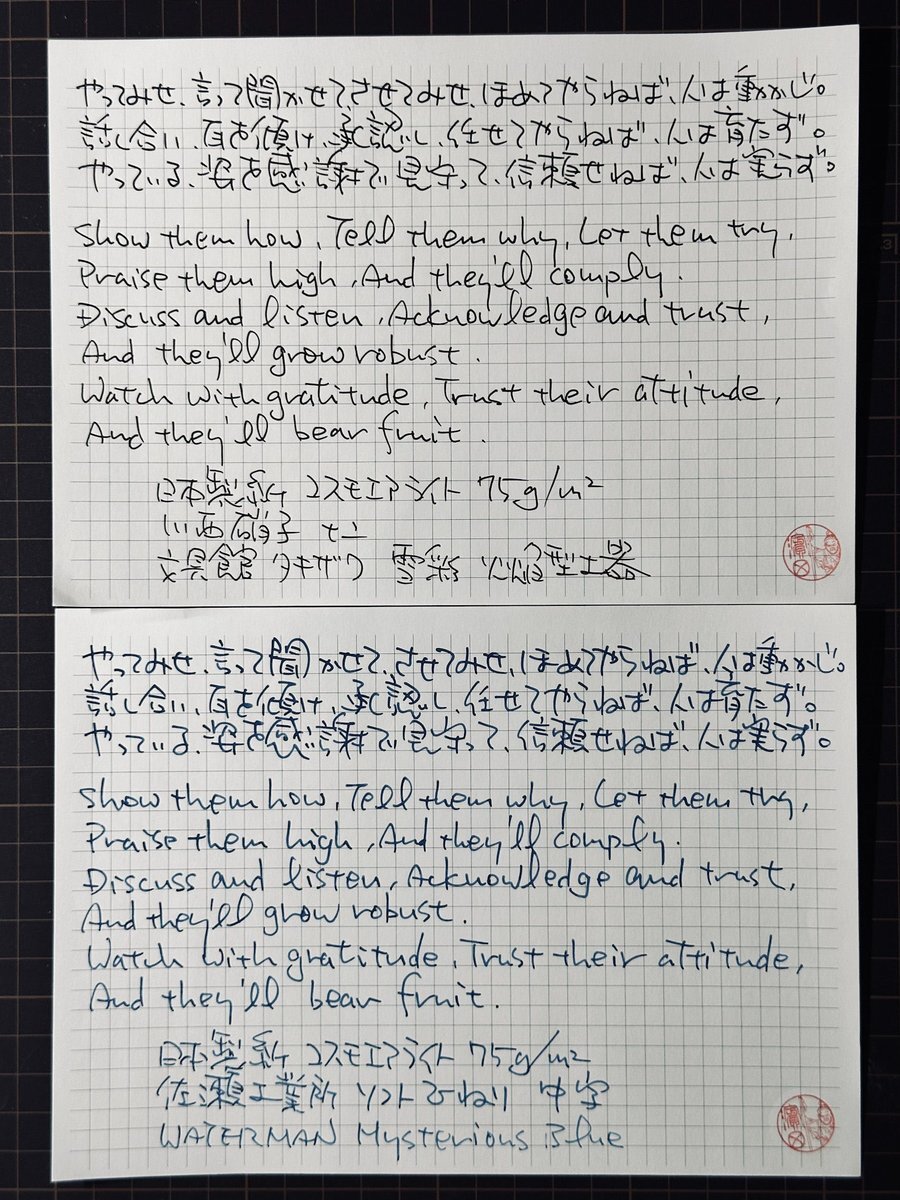 やってみせ、言って聞かせて、させてみせ、ほめてやらねば、人は動かじ。
話し合い、耳を傾け、承認し、任せてやらねば、人は育たず。
やっている、姿を感謝で見守って、信頼せねば、人は実らず。
Show them how, Tell them why, Let them try,
Praise them high, And they'll comply.
Discuss and listen, Acknowledge and trust,
And they'll grow robust.
Watch with gratitude, Trust their attitude,
And they'll bear fruit.
日本製紙 コスモエアライト 75g/m²
川西硝子
文具館 タキザワ 雪彩 火焔型土器
やってみせ、言って聞かせて、させてみせ、ほめてやらねば、人は動かじ。
話し合い、耳を傾け、承認し、任せてやらねば、人は育たず。
やっている、姿を感謝で見守って、信頼せねば、人は実らず。
Show them how, Tell them why, Let them try,
Praise them high, And they'll comply.
Discuss and listen, Acknowledge and trust,
And they'll grow robust.
Watch with gratitude, Trust their attitude,
And they'll bear fruit.
日本製紙 コスモエアライト 75g/m²
佐瀬工業所 ソフトひねり 中字
WATERMAN Mysterious Blue